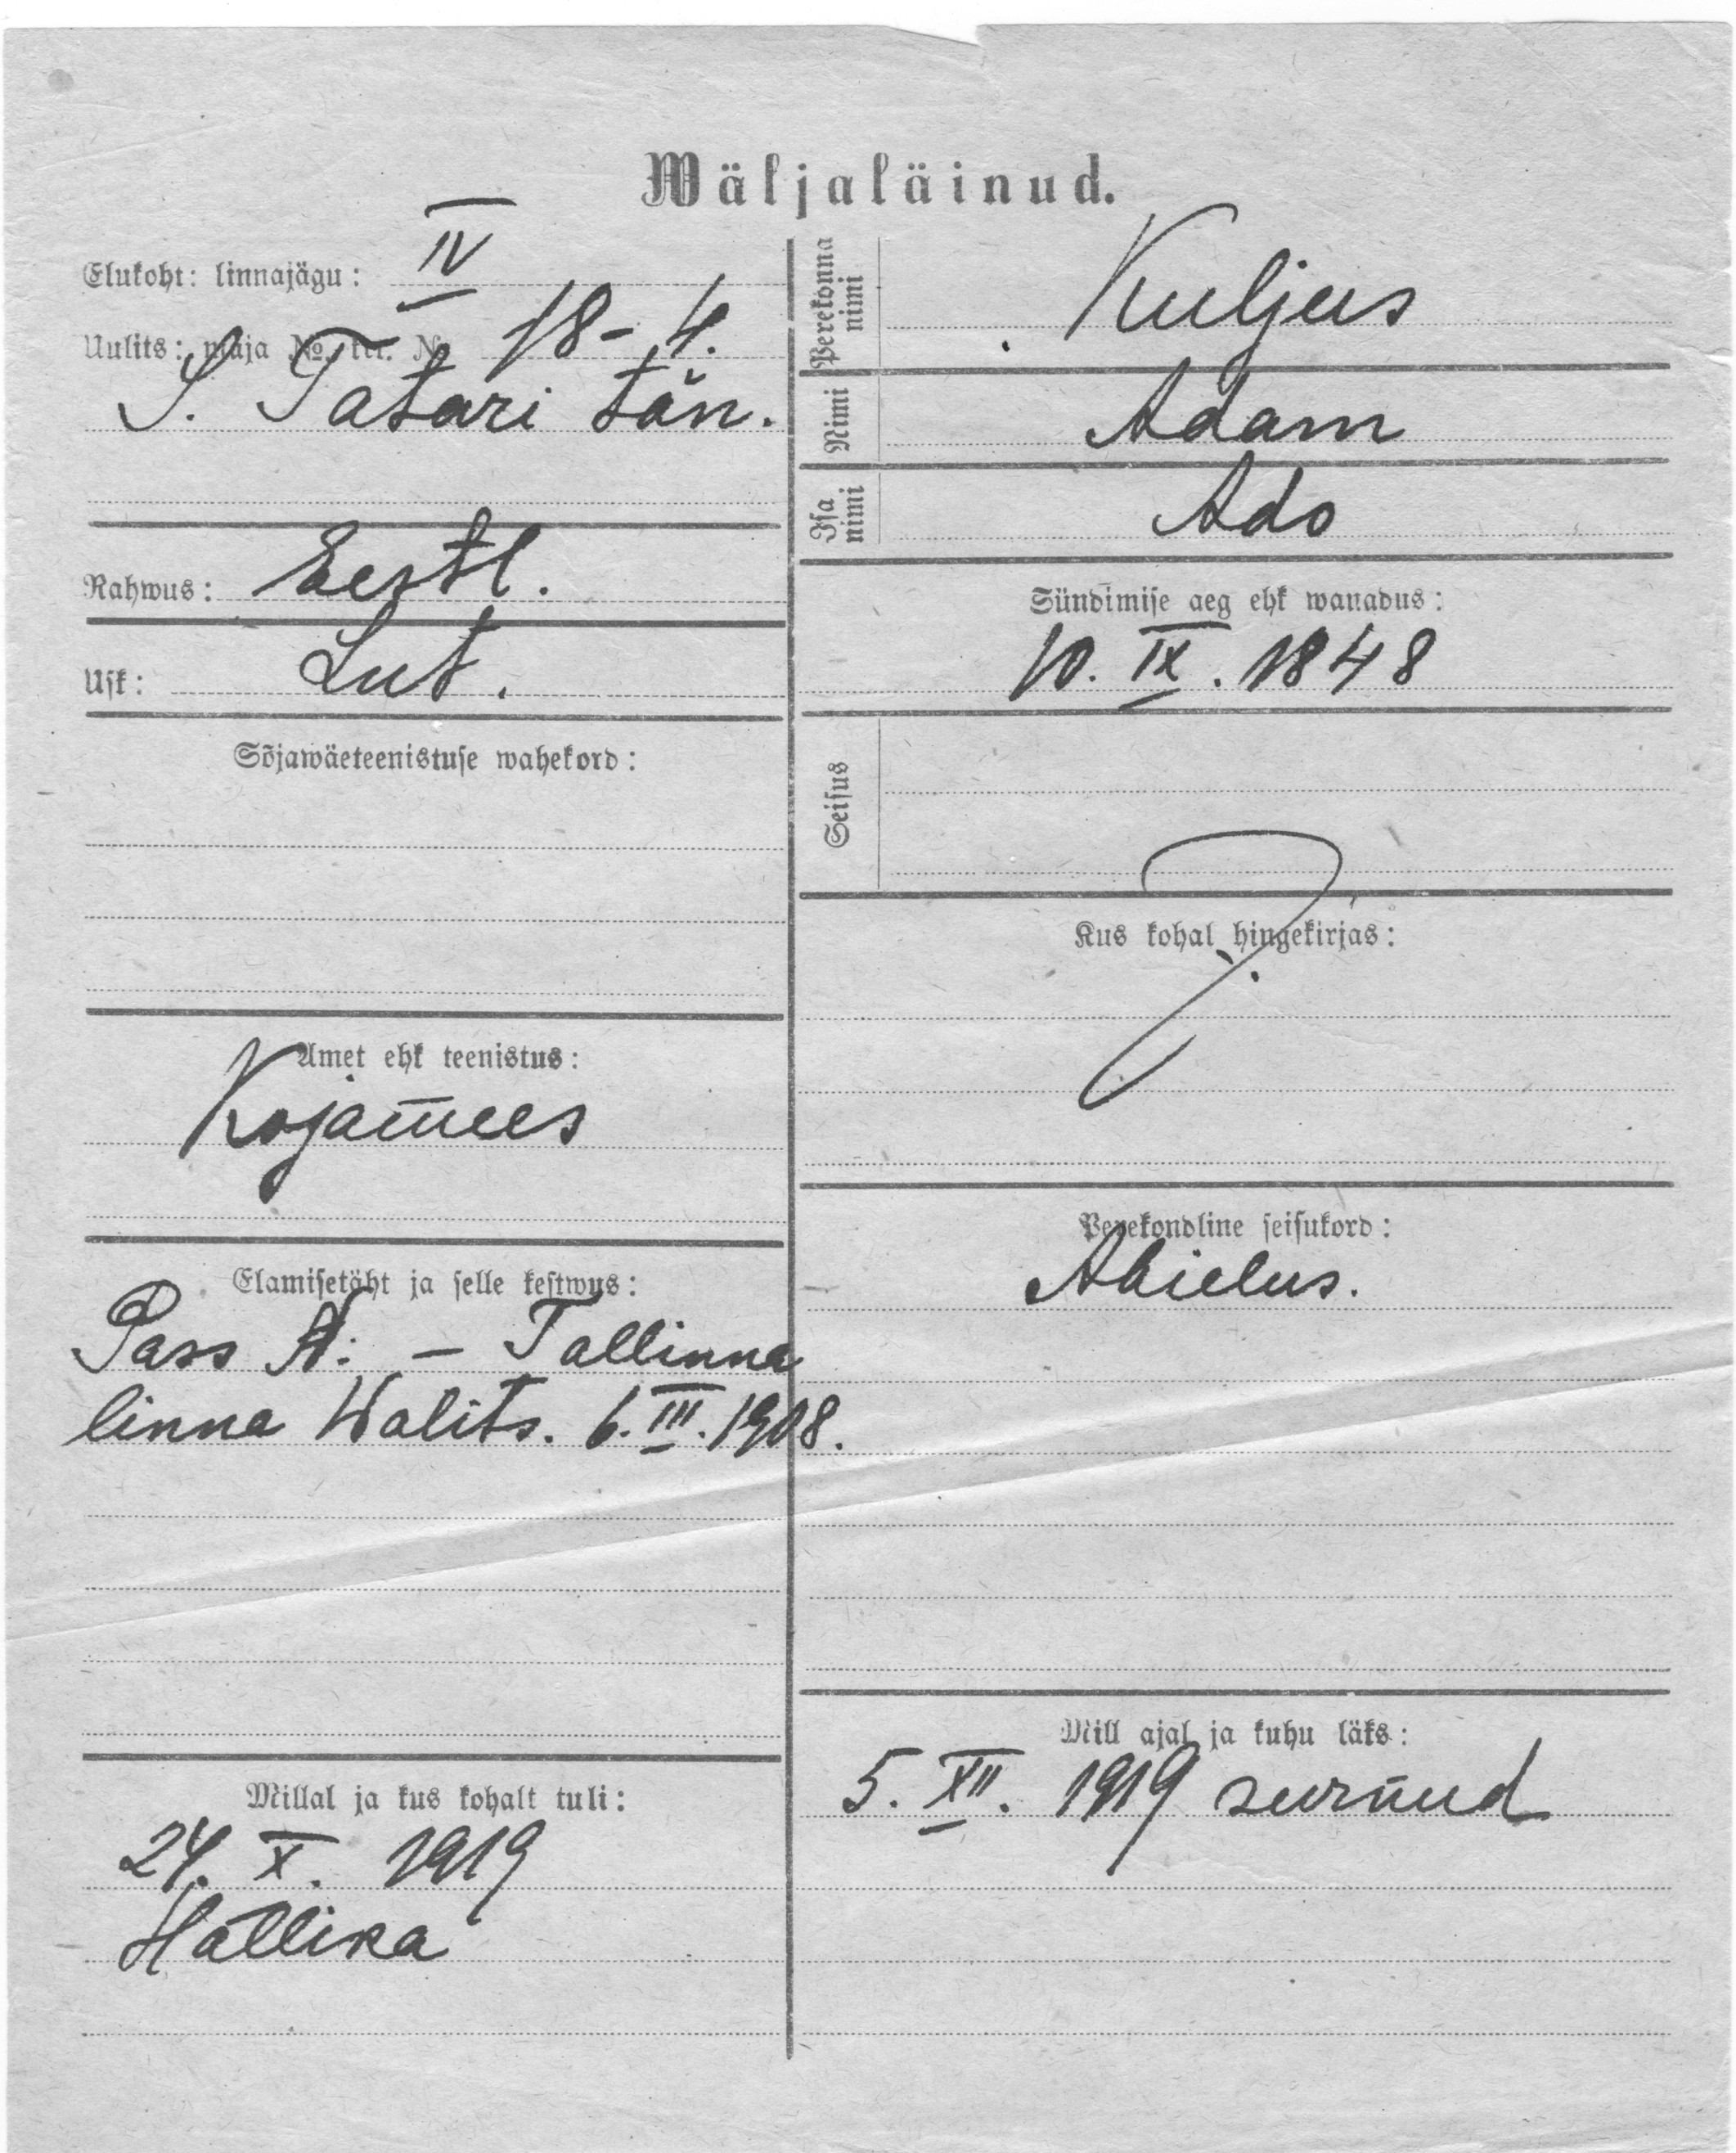 Wäljaläinud.
Elukoht: linnajägu: IV
Uulits: maja No. krt. No 18-4.
S. Tatari tän.
Rahwus: Eestl.
Usk: Lut.
Sõjawäeteenistuse wahekord:
Amet ehk teenistus:
Kojamees
Elamisetäht ja selle kestwus:
Pass N: – Tallinna
linna Walits. 6.III.1908.
Millal ja kus kohalt tuli:
24. X. 1919
Perekonna nimi
Kuljus
Nimi
Adam
Isa nimi
Ado
Sündimise aeg ehk wanadus:
10. IX. 1848
Seisus
Kus kohal hingekirjas:
Perekondline seisukord:
Abielus.
Mill ajal ja kuhu läks:
5. XII. 1919 surnud